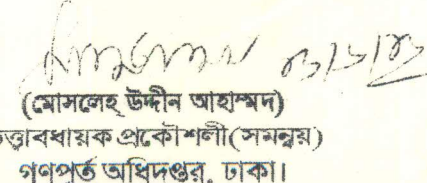 (মোসলেহ্ উদ্দীন আহাম্মদ)
ত্তাবধায়ক প্রকৌশলী(সমন্বয়)
গণপূর্ত অধিদপ্তর, ঢাকা।